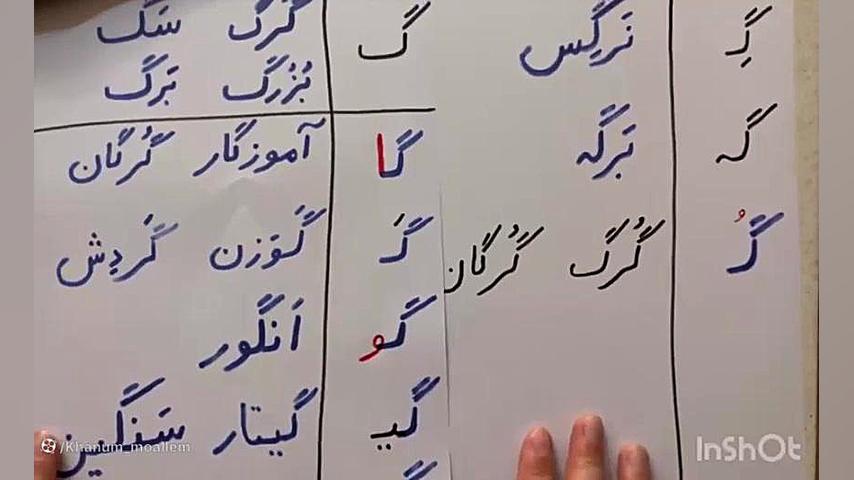 گِ نَرگِس
گه بَرگه
گُ گُرگ گُرگان
گ گُرگ سَگ
بُزُرگ بَرگ
گا آموزگار گُرگان
گَ گَوَزن گَردِش
گو اَنگور
گیـ گیتار سَنگین
/Khanum_moallem
InShOt